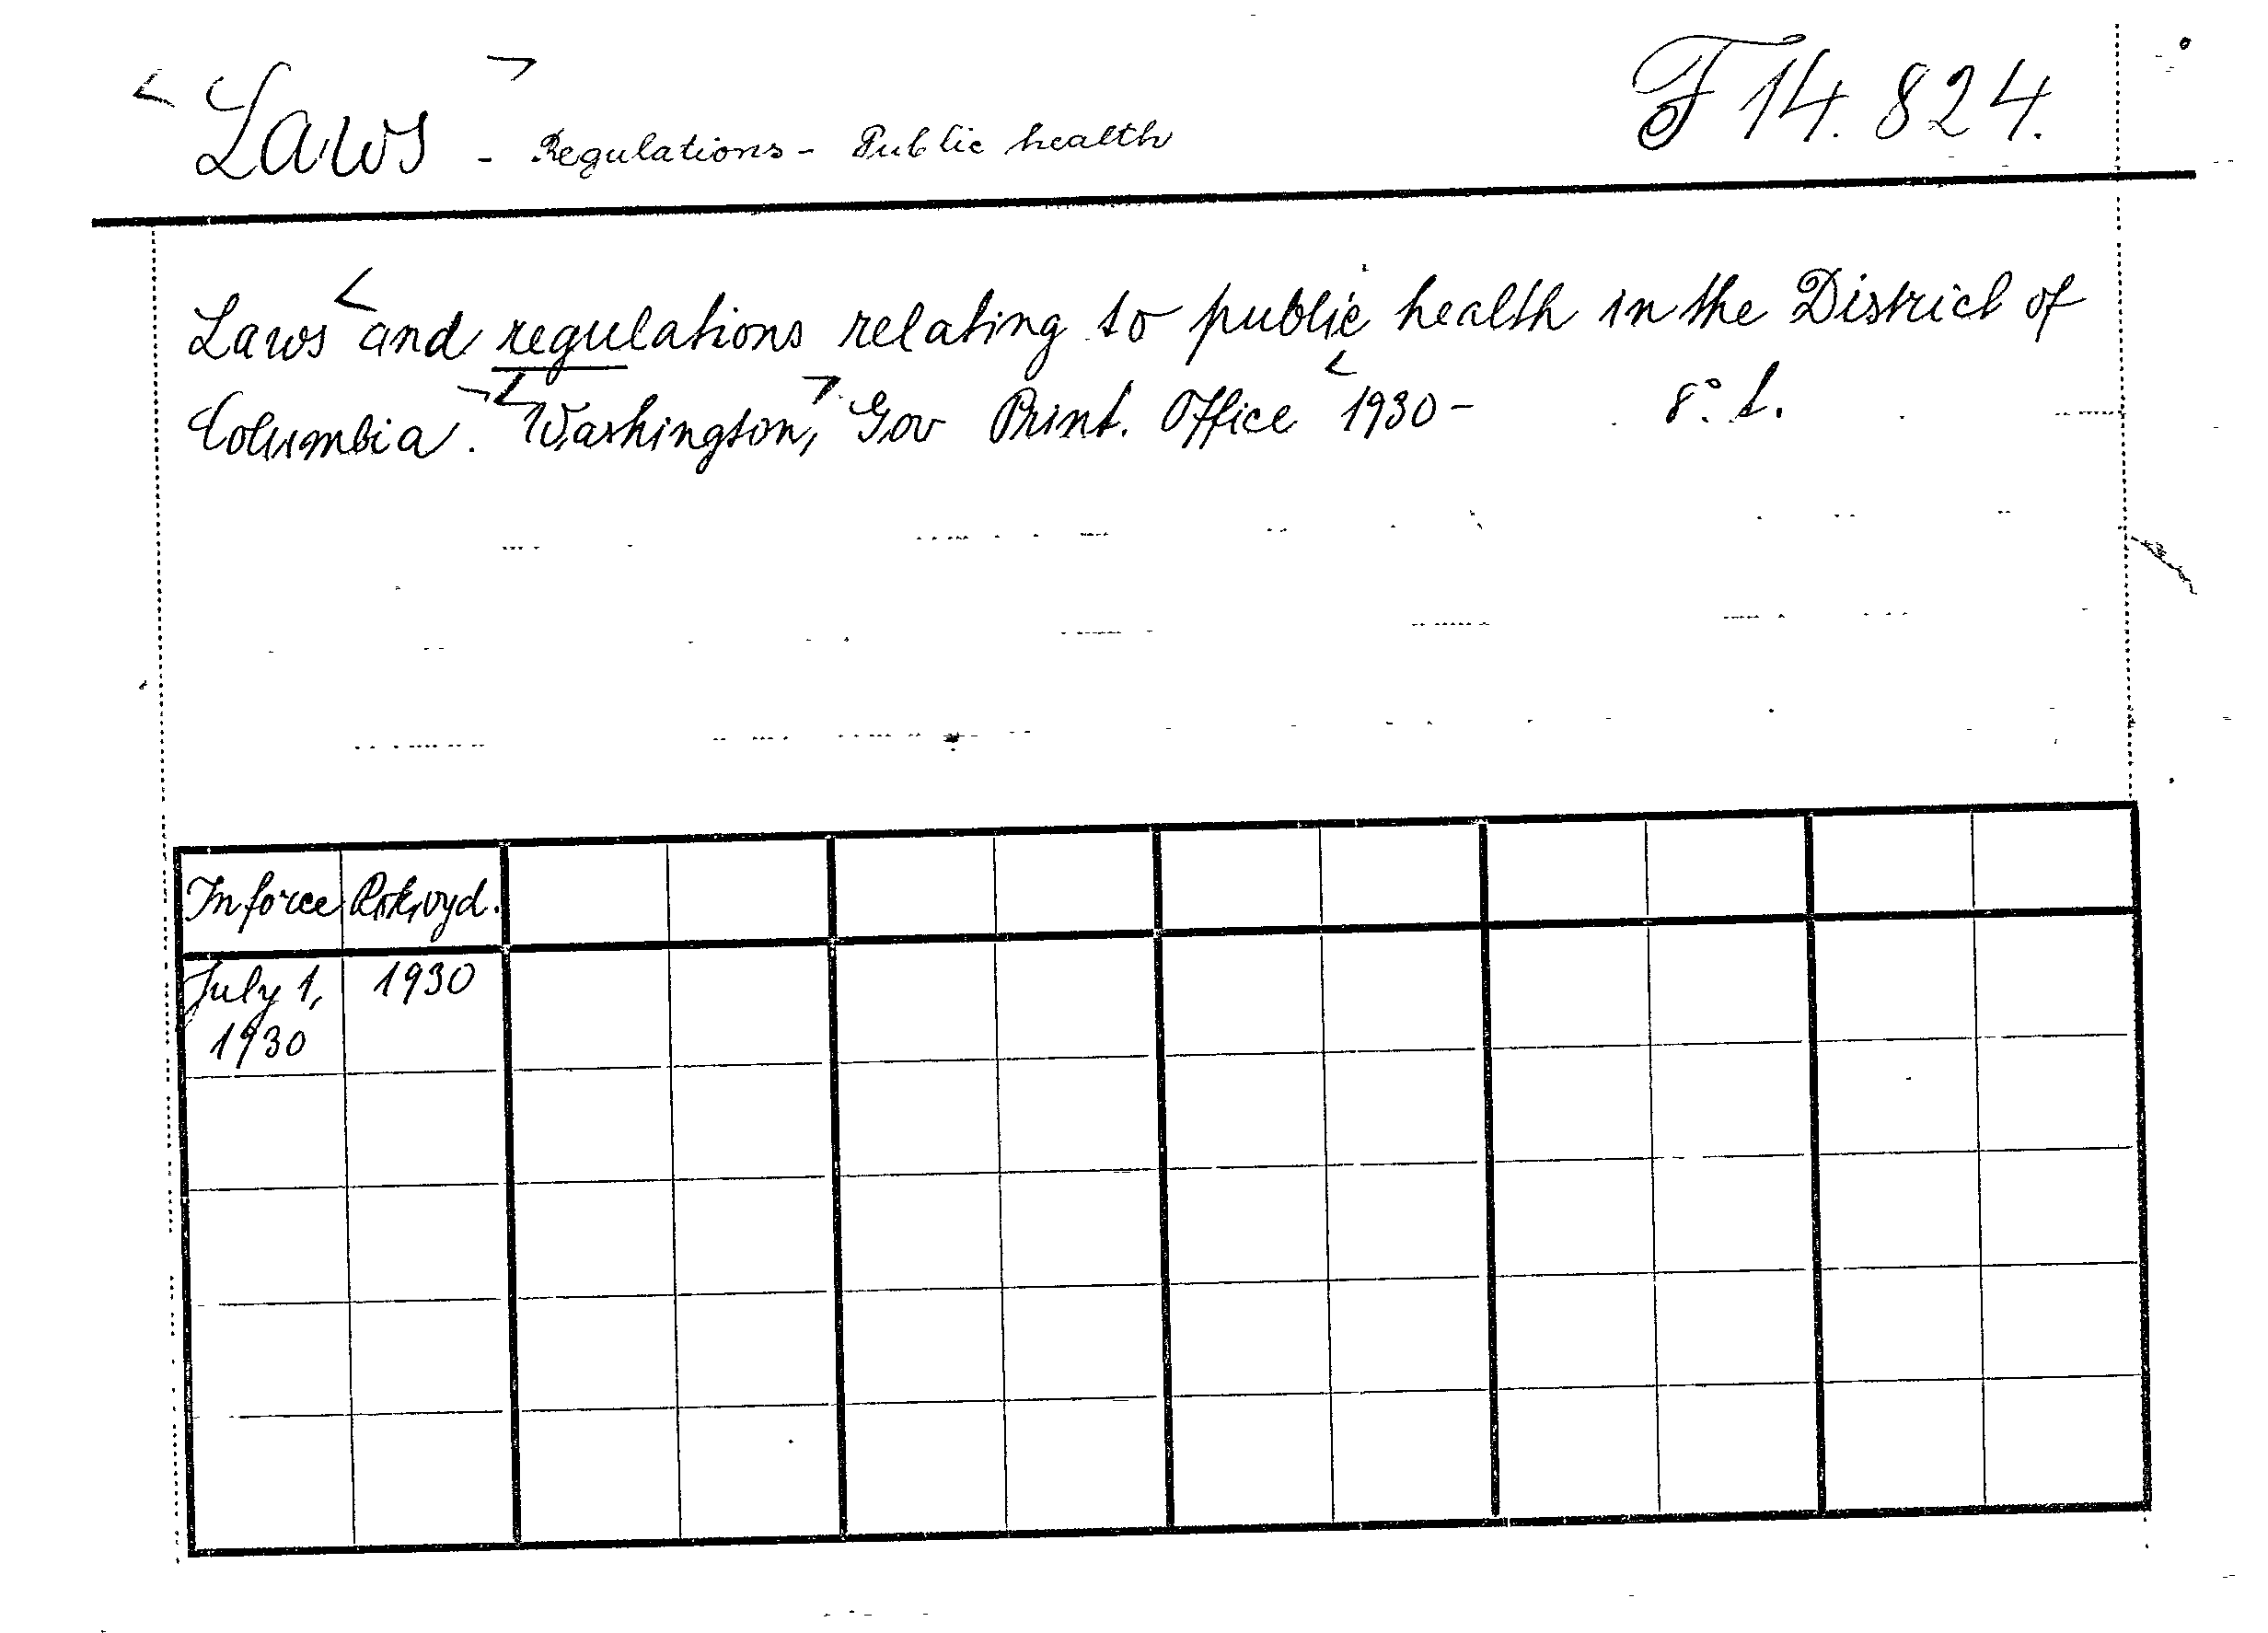 <Laws> - Regulations - Public health F 14. 824.
Laws <and regulations relating to public health in the District of
Columbia>. <Washington,> Gov Print. Office <1930- 8°. L.
In force Rok vyd.
July 1, 1930
1930